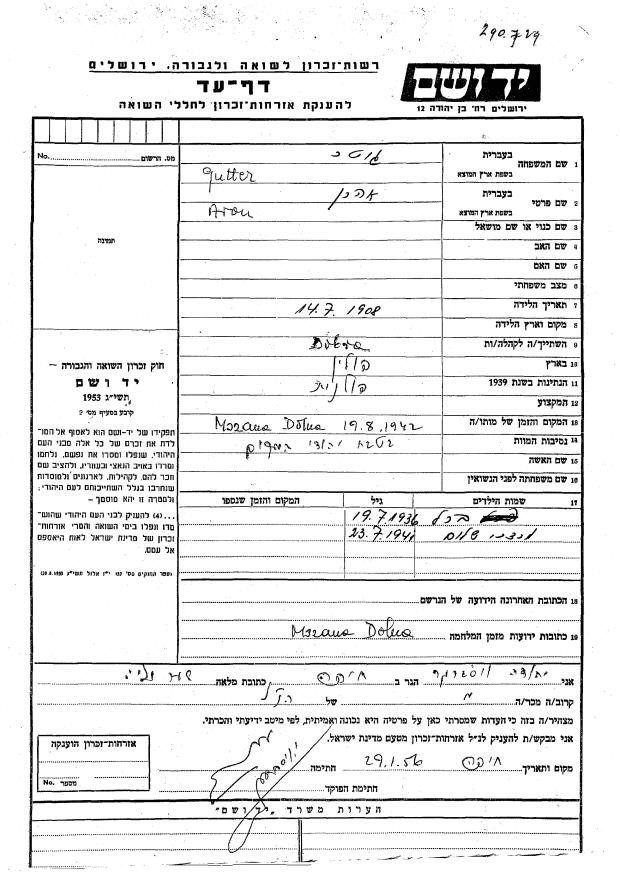 290.729
רשות־זכרון לשואה ולגבורה, ירושלים
דף־עד
להענקת אזרחות־זכרון לחללי השואה
יד ושם
ירושלים רח׳ בן יהודה 12
מס. הרשום No.
תמונה
1 שם המשפחה בעברית
בשפת ארץ המוצא Gutter
2 שם פרטי בעברית אהרן
בשפת ארץ המוצא Aron
3 שם כנוי או שם מושאל
4 שם האב
5 שם האם
6 מצב משפחתי
7 תאריך הלידה 14.7.1908
8 מקום וארץ הלידה
9 השתייך/ה לקהלה/ות Dobra
10 בארץ פולין
11 הנתינות בשנת 1939 פולנית
12 המקצוע
13 המקום והזמן של מותו/ה Mszana Dolna 19.8.1942
14 נסיבות המוות
15 שם האשה
16 שם משפחתה לפני הנשואין
17 שמות הילדים גיל המקום והזמן שנספו
19.7.1936
שלום 23.7.1941
18 הכתובת האחרונה הידועה של הנרשם
19 כתובות ידועות מזמן המלחמה Mszana Dolna
חוק זכרון השואה והגבורה –
יד ושם
תשי״ג 1953
קובע בסעיף מס׳ 2
תפקידו של יד־ושם הוא לאסוף אל המו־
לדת את זכרם של כל אלה מבני העם
היהודי, שנפלו ומסרו את נפשם, נלחמו
ומרדו באויב הנאצי ובעוזריו, ולהציב שם
וזכר להם, לקהילות, לארגונים ולמוסדות
שנחרבו בגלל השתייכותם לעם היהודי;
ולמטרה זו יהא מוסמך –
...(4) להעניק לבני העם היהודי שהוש־
מדו ונפלו בימי השואה והמרי אזרחות־
זכרון של מדינת ישראל לאות היאספם
אל עמם.
אני הגר ב חיפה כתובת מלאה
קרוב/ה מכר/ה של
מצהיר/ה בזה כי העדות שמסרתי כאן על פרטיה היא נכונה ואמיתית, לפי מיטב ידיעתי והכרתי.
אני מבקש/ת להעניק לנ״ל אזרחות־זכרון מטעם מדינת ישראל.
מקום ותאריך חיפה 29.1.56 חתימה
חתימת הפוקד
אזרחות־זכרון הוענקה
מספר No.
הערות משרד „יד ושם״